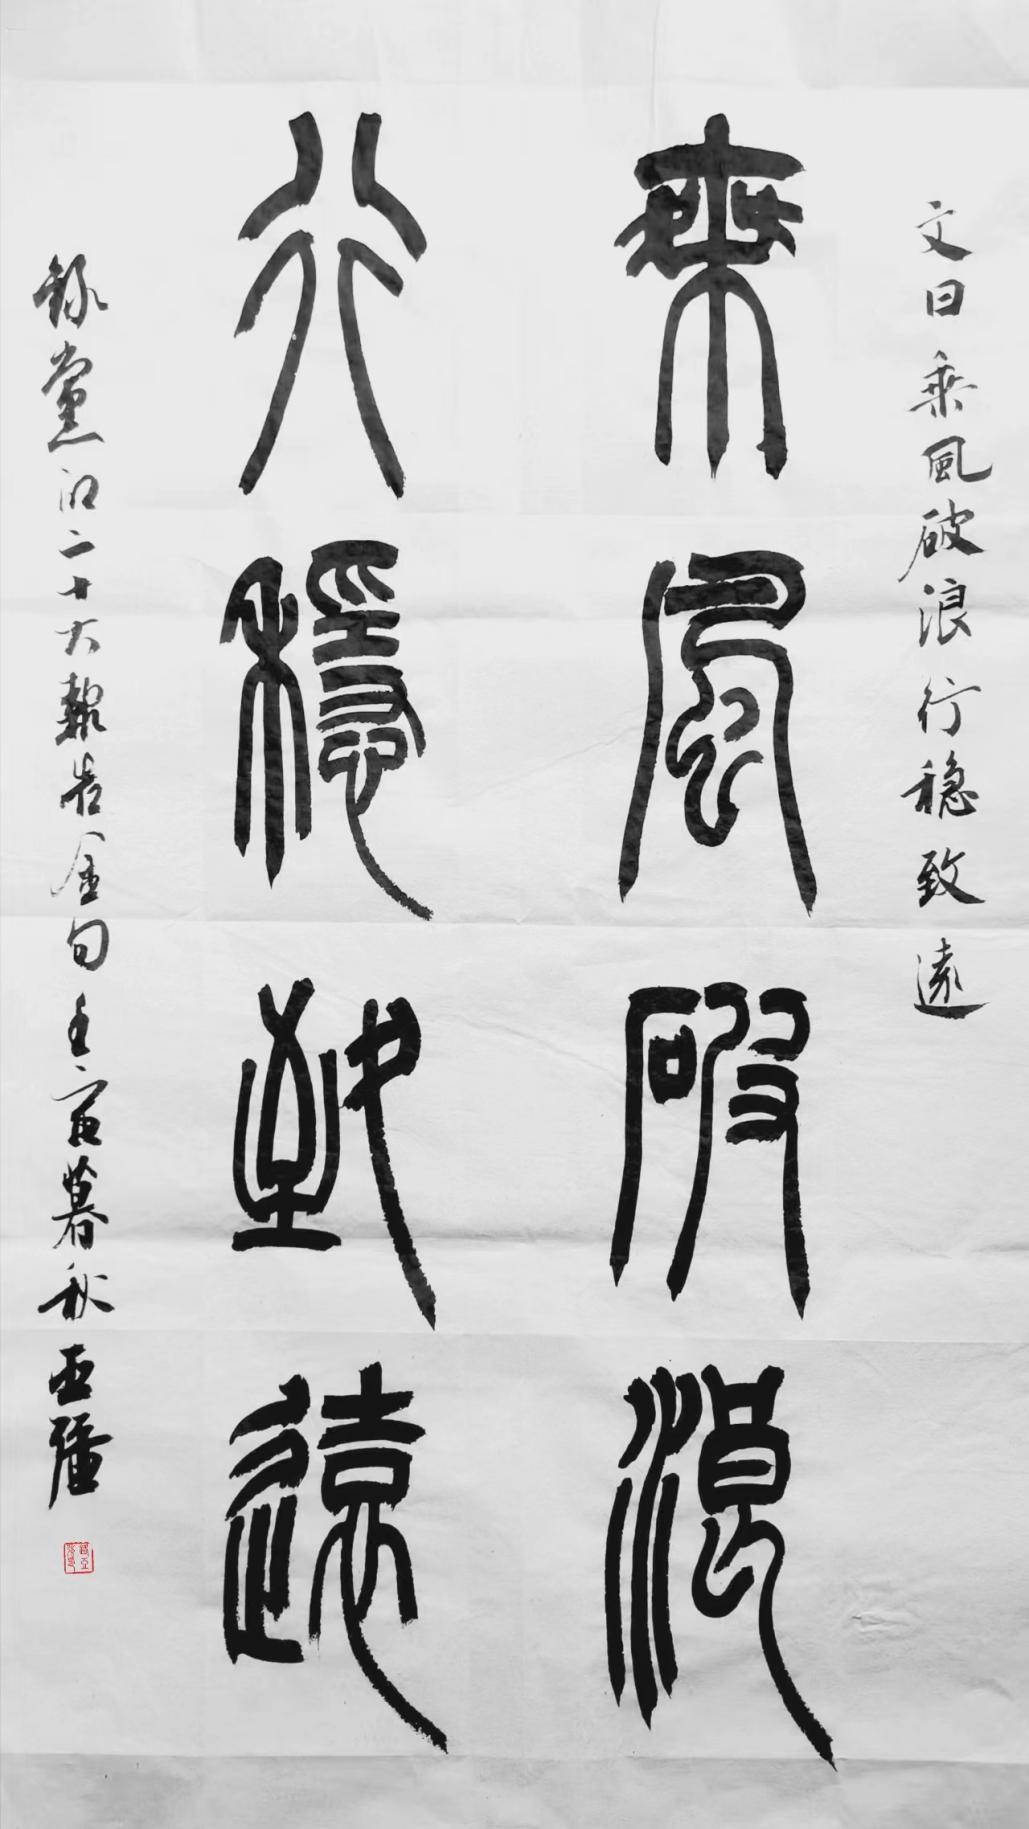 文曰乘風破浪行穩致遠
乘風破浪
行穩致遠
錄黨的二十大報告金句壬寅暮秋亞彊